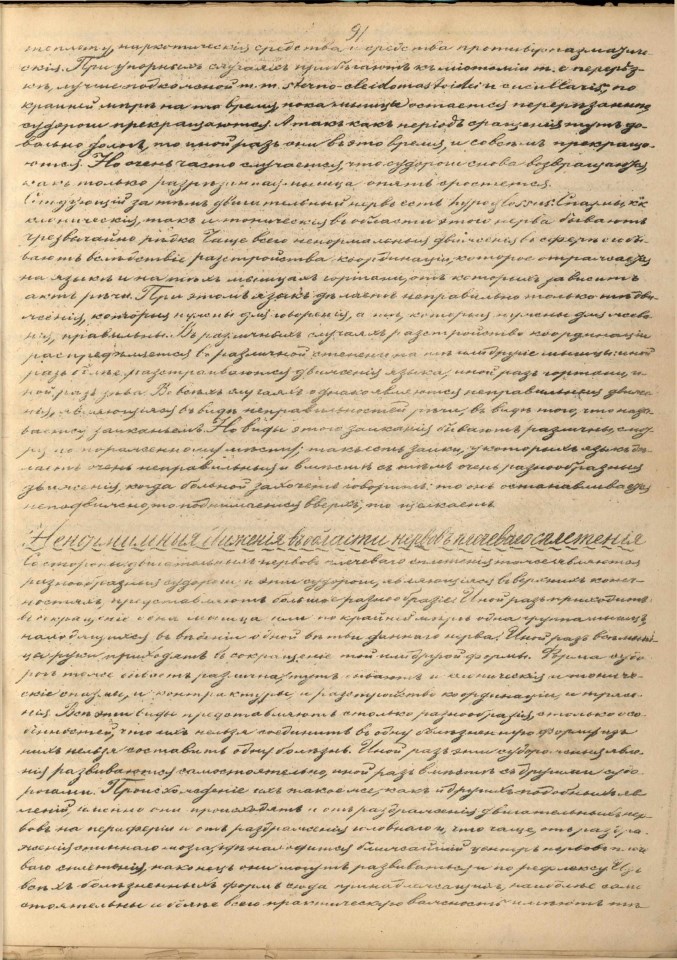 91
теплоту, наркотическія средства и средства противуспазматиче-
скія. При упорныхъ случаяхъ прибѣгаютъ къ міотоміи т. е. перерѣз-
кѣ, лучше подкожной m. m. sterno-cleidomastoidei и cucullaris, по
крайней мѣрѣ на то время пока мышца остается перерѣзанной
судороги прекращаются. А такъ какъ періодъ сращенія тутъ до-
вольно дологъ, то иной разъ они въ это время, и совсѣмъ прекраща-
ются. Но очень часто случается, что судороги снова возвращаются,
какъ только разрѣзанная мышца опять сростется.
Слѣдующій за тѣмъ двигательный нервъ есть hypoglossus. Спазмы, какъ
клоническія, такъ и тоническія въ области этого нерва бываютъ
чрезвычайно рѣдко. Чаще всего ненормальныя движенія въ сферѣ его бы-
ваютъ вслѣдствіе разстройства координаціи, которое отражается
на языкѣ и на тѣхъ мышцахъ гортани, отъ которыхъ зависитъ
актъ рѣчи. При этомъ языкъ дѣлаетъ неправильно только тѣ дви-
женія, которыя нужны для говоренія, а тѣ, которыя нужны для жева-
нія, правильны. Въ различныхъ случаяхъ разстройство координаціи
распредѣляется въ различной степени на тѣ или другіе мышцы: иной
разъ болѣе разстраиваются движенія языка, иной разъ гортани, и-
ной разъ зѣва. Во всѣхъ случаяхъ однако являются неправильныя движе-
нія, являющіяся въ видѣ неправильностей рѣчи, въ видѣ того, что назы-
вается заиканьемъ. Но виды этого заиканія бываютъ различны, смот-
ря по пораженному мѣсту; такъ есть заики, у которыхъ языкъ дѣ-
лаетъ очень неправильныя и вмѣстѣ съ тѣмъ очень разнообразныя
движенія, когда больной захочетъ говорить: то онъ останавливается
неподвижно, то поднимается вверхъ, то щелкаетъ.
Ненормальныя движенія въ области нервовъ плечеваго сплетенія
Со стороны двигательныхъ нервовъ плечеваго сплетенія тоже являются
разнообразныя судороги и эти судороги, являющіяся въ верхнихъ конеч-
ностяхъ, представляютъ большое разнообразіе. Иной разъ приходитъ
въ сокращеніе одна мышца или по крайней мѣрѣ одна группа мышцъ,
находящихся въ вѣденіи одной вѣтви даннаго нерва. Иной разъ всѣ мыш-
цы руки приходятъ въ сокращеніе той или другой формы. Форма судо-
рогъ тоже бываетъ различна: тутъ бываютъ и клоническія и тониче-
скіе спазмы, и контрактуры, и разстройство координаціи, и трясе-
нія. Всѣ эти виды представляютъ столько разнообразія, столько осо-
бенностей, что ихъ нельзя соединить въ одну болѣзненную форму, изъ
нихъ нельзя составить одну болѣзнь. Иной разъ эти судорожныя явле-
нія развиваются самостоятельно, иной разъ вмѣстѣ съ другими судо-
рогами. Происхожденіе ихъ такое же, какъ и другихъ подобныхъ яв-
леній, именно они происходятъ и отъ раздраженія двигательныхъ нер-
вовъ на периферіи и отъ раздраженія головнаго и, что чаще, отъ раздра-
женія спиннаго мозга, гдѣ находится ближайшій центръ нервовъ плече-
ваго сплетенія, наконецъ они могутъ развиваться и по рефлексу. Изъ
всѣхъ болѣзненныхъ формъ сюда принадлежащихъ, наиболѣе само-
стоятельны и болѣе всего практическую важность имѣютъ тѣ